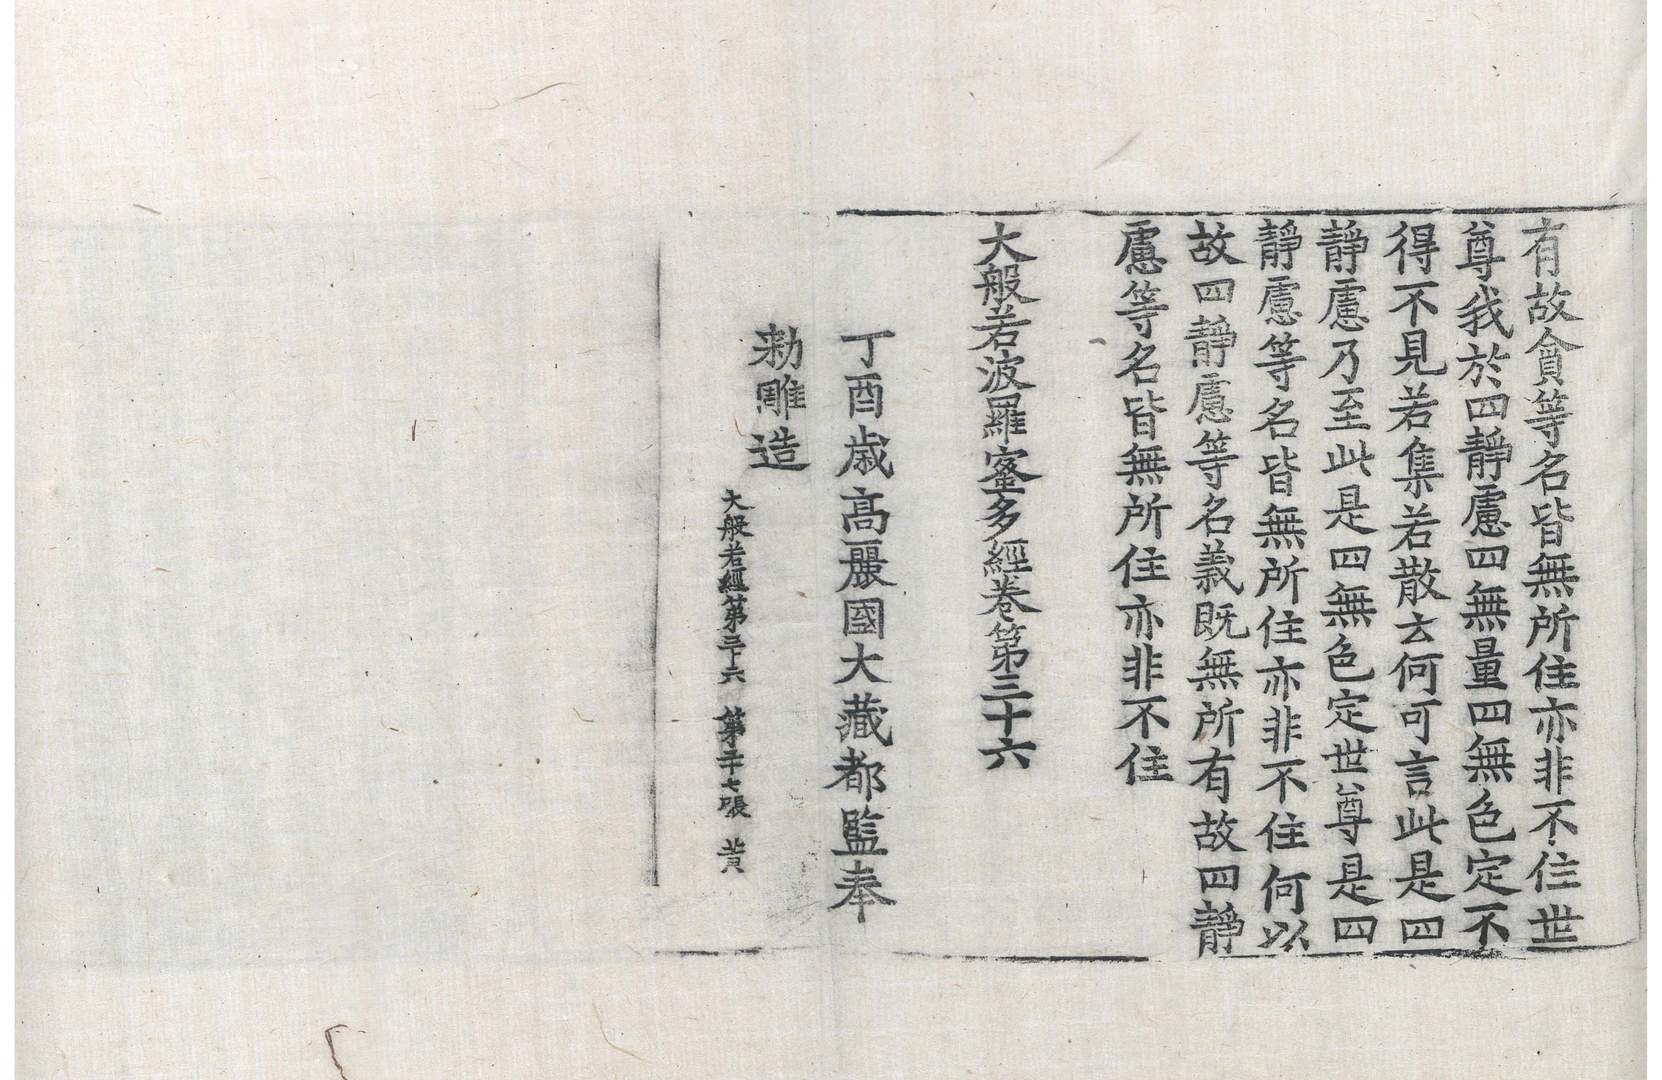 有故貪等名皆無所住亦非不住世
尊我於四靜慮四無量四無色定不
得不見若集若散云何可言此是四
靜慮乃至此是四無色定世尊是四
靜慮等名皆無所住亦非不住何以
故四靜慮等名義既無所有故四靜
慮等名皆無所住亦非不住
大般若波羅蜜多經卷第三十六
丁酉歲高麗國大藏都監奉
勅雕造
大般若經第三十六 第二十七張 黃